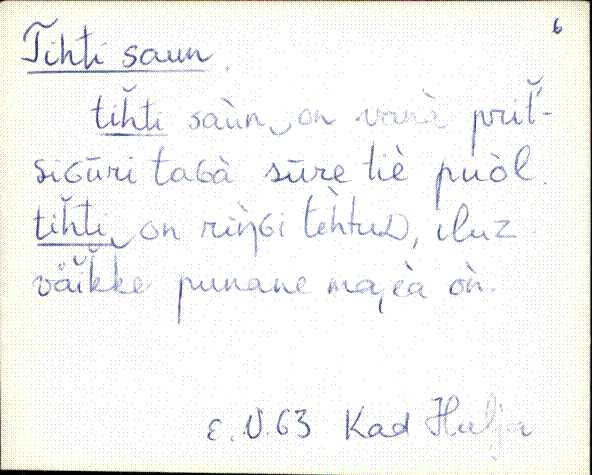 6
Tihti saun.
tih̆ti saùn on vanà prit̆'-
siɢūri taɢà sūre tiè puòl.
tih̆ti on riŋ̀ɢi tèhtuᴅ, iluz
väĭkke punane maja òn.
E. V. 63 Kad Halja